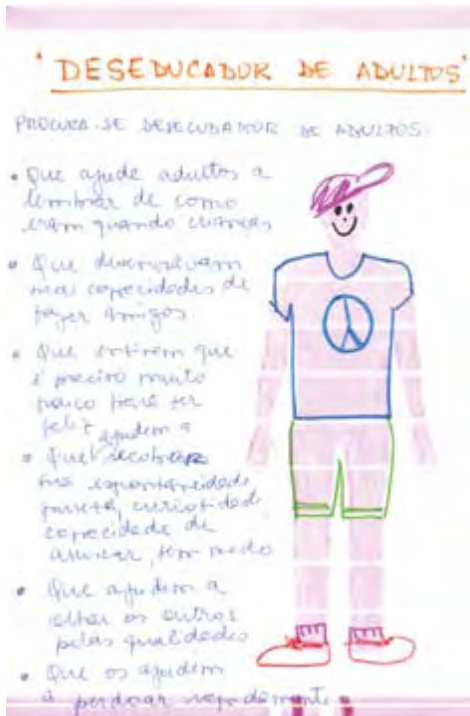 "DESEDUCADOR DE ADULTOS"
PROCURA-SE DESEDUCADOR DE ADULTOS:
• Que ajude adultos a
lembrar de como
eram quando crianças
• Que desenvolvam
capacidades de
fazer amigos.
• Que
é preciso muito
pouco para ser
feliz
• Que ajudem a
espontaneidade
curiosidade
capacidade de
sem medo
• Que ajudem a
olhar os outros
pelas qualidades
• Que os ajudem
a perdoar rapidamente